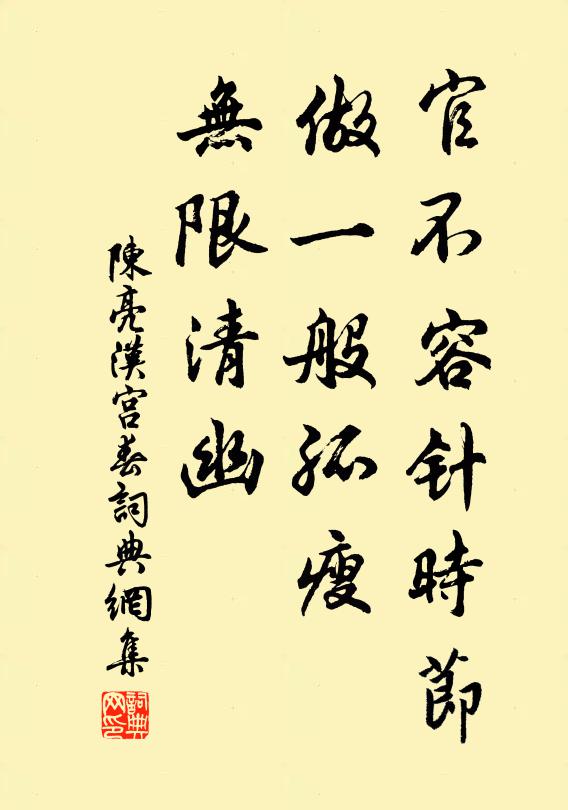 官不容针時節
做一般孤瘦
無限清幽
陳亮漢宫春詞典網集
詞典网印